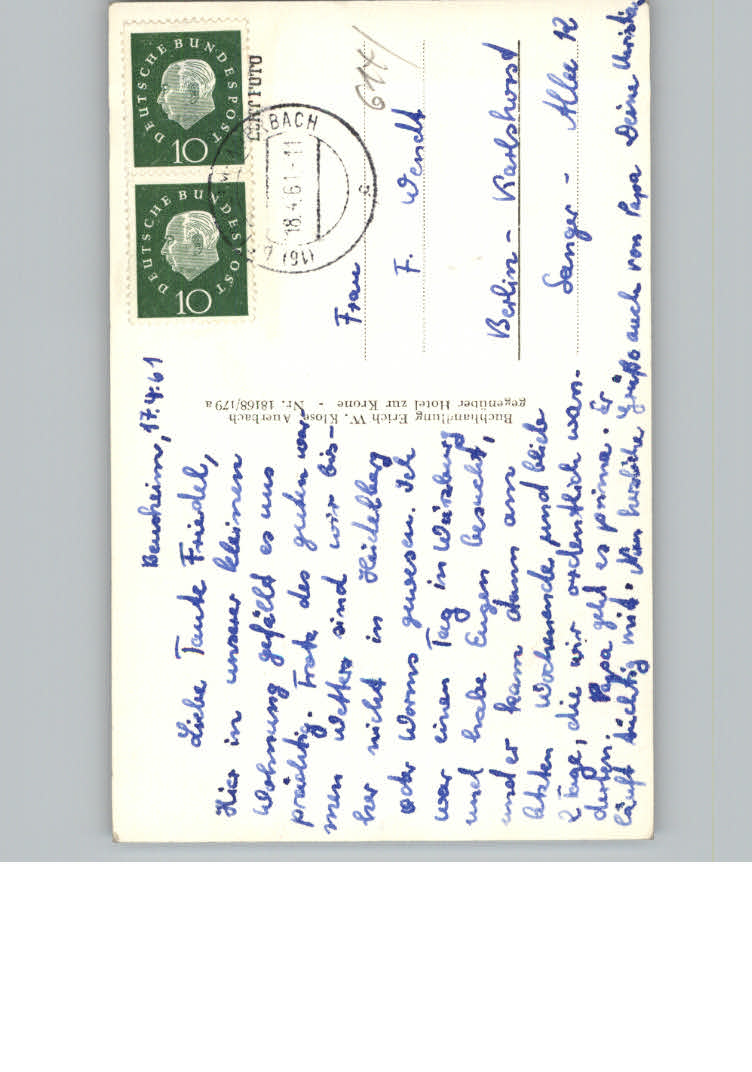 Bensheim, 17.4.61
Liebe Tante Friedel,
Hier in unserer kleinen
Wohnung gefällt es uns
prächtig. Trotz des guten war-
men Wetters sind wir bis-
her nicht in Heidelberg
oder Worms gewesen. Ich
war einen Tag in Würzburg
und habe Eugen besucht,
und er kam dann am
letzten Wochenende und blieb
2 Tage, die wir ordentlich wan-
derten. Papa geht es prima. Er
läuft tüchtig mit. Nun herzliche Grüße auch von Papa Deine
Buchhandlung Erich W. Klose Auerbach
gegenüber Hotel zur Krone - Nr. 18168/179 a
DEUTSCHE BUNDESPOST
10
DEUTSCHE BUNDESPOST
10
ECHT FOTO
18.4.61-11
(16)
c
614/
Frau
F. Wendt
Berlin - Karlshorst
Sanger - Allee 12